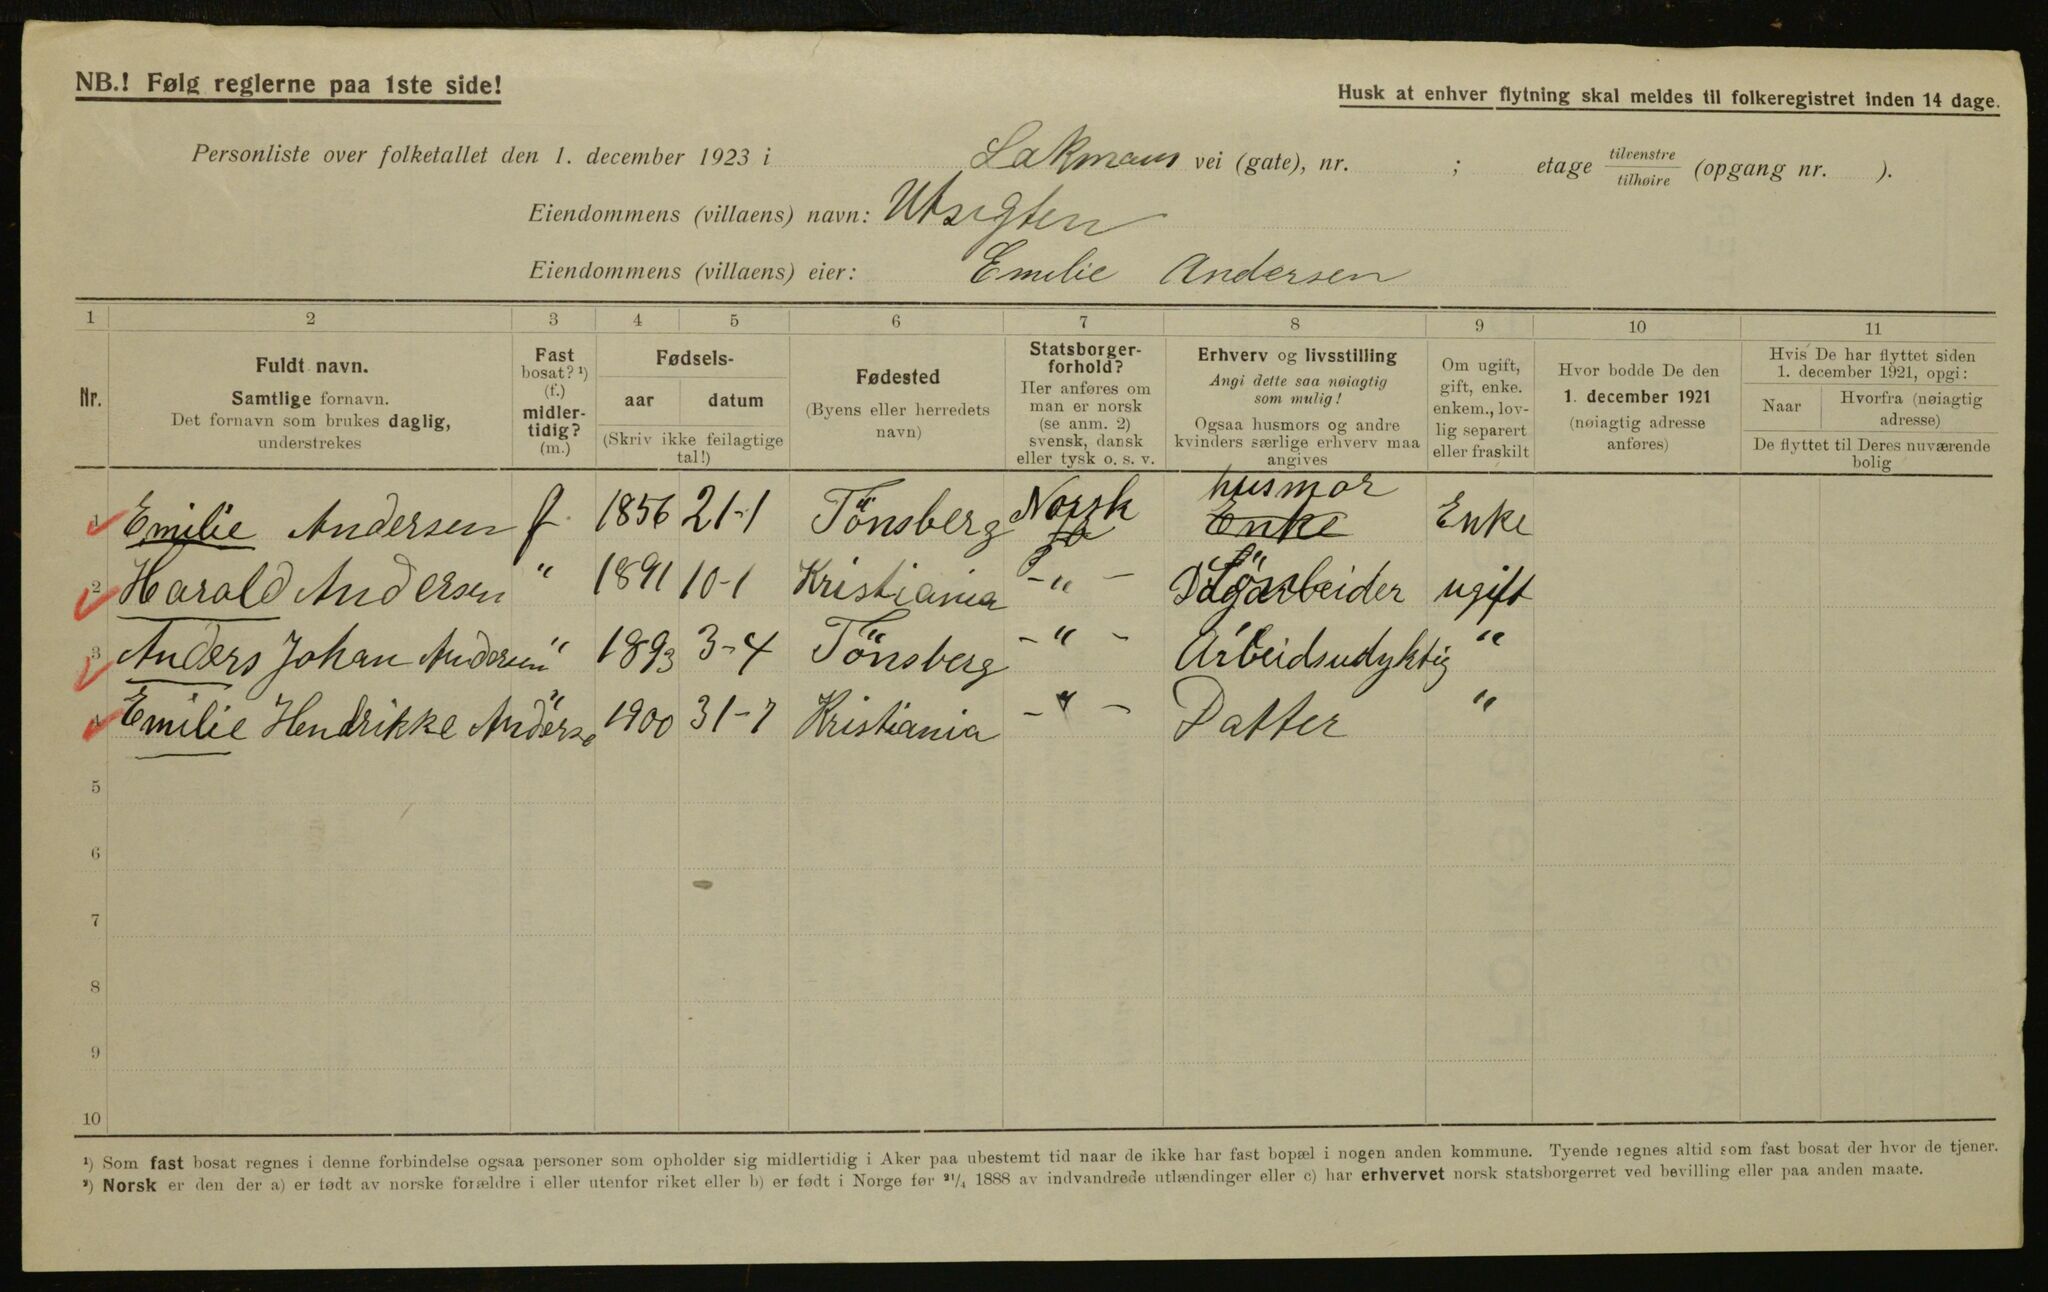 NB.! Følg reglerne paa 1ste side!
Husk at enhver flytning skal meldes til folkeregistret inden 14 dage.
Personliste over folketallet den 1. december 1923 i Lakmans vei (gate), nr. ; etage tilvenstre / tilhøire (opgang nr. ).
Eiendommens (villaens) navn: Utsigten
Eiendommens (villaens) eier: Emilie Andersen
1 2 3 4 5 6 7 8 9 10 11
Nr.
Fuldt navn.
Samtlige fornavn.
Det fornavn som brukes daglig,
understrekes
Fast
bosat? ¹)
(f.)
midler-
tidig?
(m.)
Fødsels-
aar datum
(Skriv ikke feilagtige
tal!)
Fødested
(Byens eller herredets
navn)
Statsborger-
forhold?
Her anføres om
man er norsk
(se anm. 2)
svensk, dansk
eller tysk o. s. v.
Erhverv og livsstilling
Angi dette saa nøiagtig
som mulig!
Ogsaa husmors og andre
kvinders særlige erhverv maa
angives
Om ugift,
gift, enke.
enkem., lov-
lig separert
eller fraskilt
Hvor bodde De den
1. december 1921
(nøiagtig adresse
anføres)
Hvis De har flyttet siden
1. december 1921, opgi:
Naar Hvorfra (nøiagtig
adresse)
De flyttet til Deres nuværende
bolig
husmor
1 Emilie Andersen f. 1856 21-1 Tönsberg Norsk Enke Enke
2 Harald Andersen " 1891 10-1 Kristiania -"- ugift
3 Anders Johan Andersen " 1893 3-4 Tönsberg -"- Arbeidsudyktig "
4 Emilie Hendrikke Anderse " 1900 31-7 Kristiania -"- Datter "
5
6
7
8
9
10
¹) Som fast bosat regnes i denne forbindelse ogsaa personer som opholder sig midlertidig i Aker paa ubestemt tid naar de ikke har fast bopæl i nogen anden kommune. Tyende regnes altid som fast bosat der hvor de tjener.
²) Norsk er den der a) er født av norske forældre i eller utenfor riket eller b) er født i Norge før ²¹/₄ 1888 av indvandrede utlændinger eller c) har erhvervet norsk statsborgerret ved bevilling eller paa anden maate.